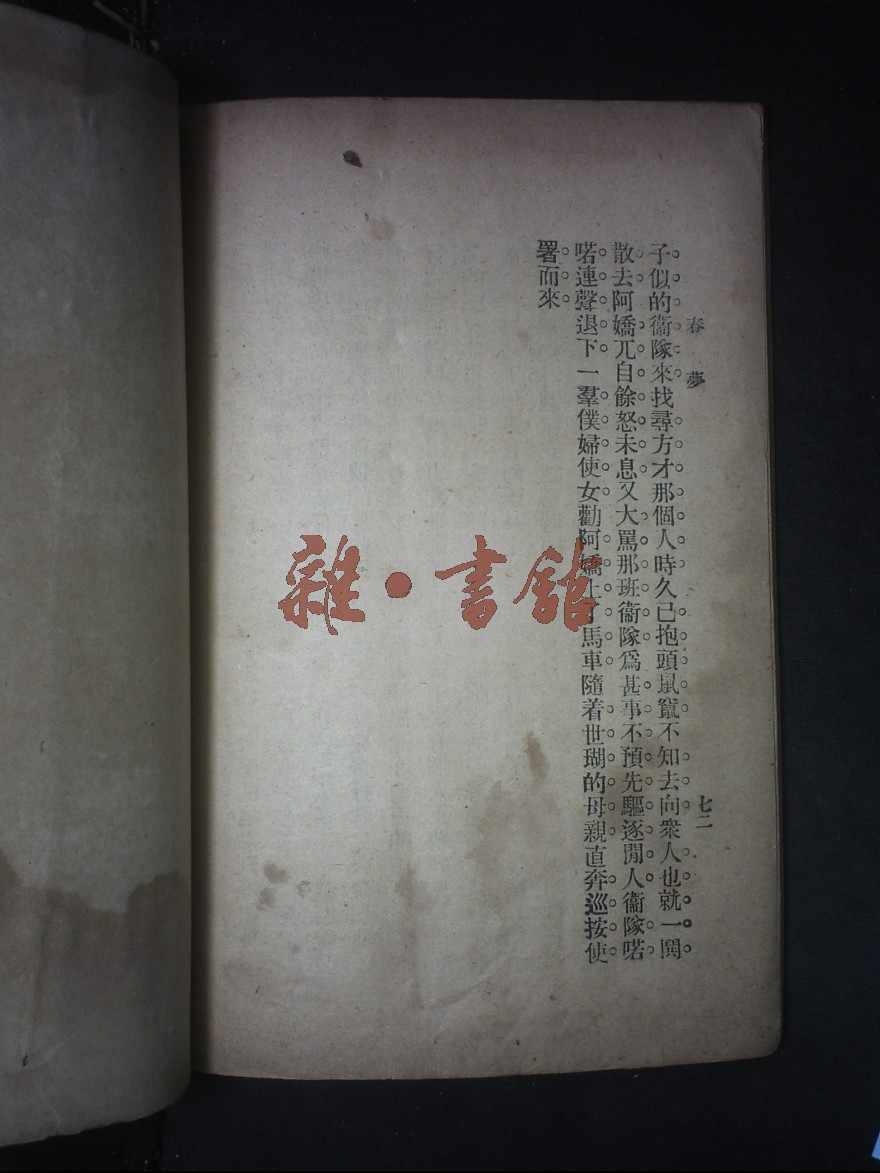 春夢
七二
子似的衞隊來找尋方才那個人時久已抱頭鼠竄不知去向衆人也就一鬨
散去阿嬌兀自餘怒未息又大罵那班衞隊爲甚事不預先驅逐閒人衞隊喏
喏連聲退下一羣僕婦使女勸阿嬌上了馬車隨着世瑚的母親直奔巡按使
署而來
雜·書館